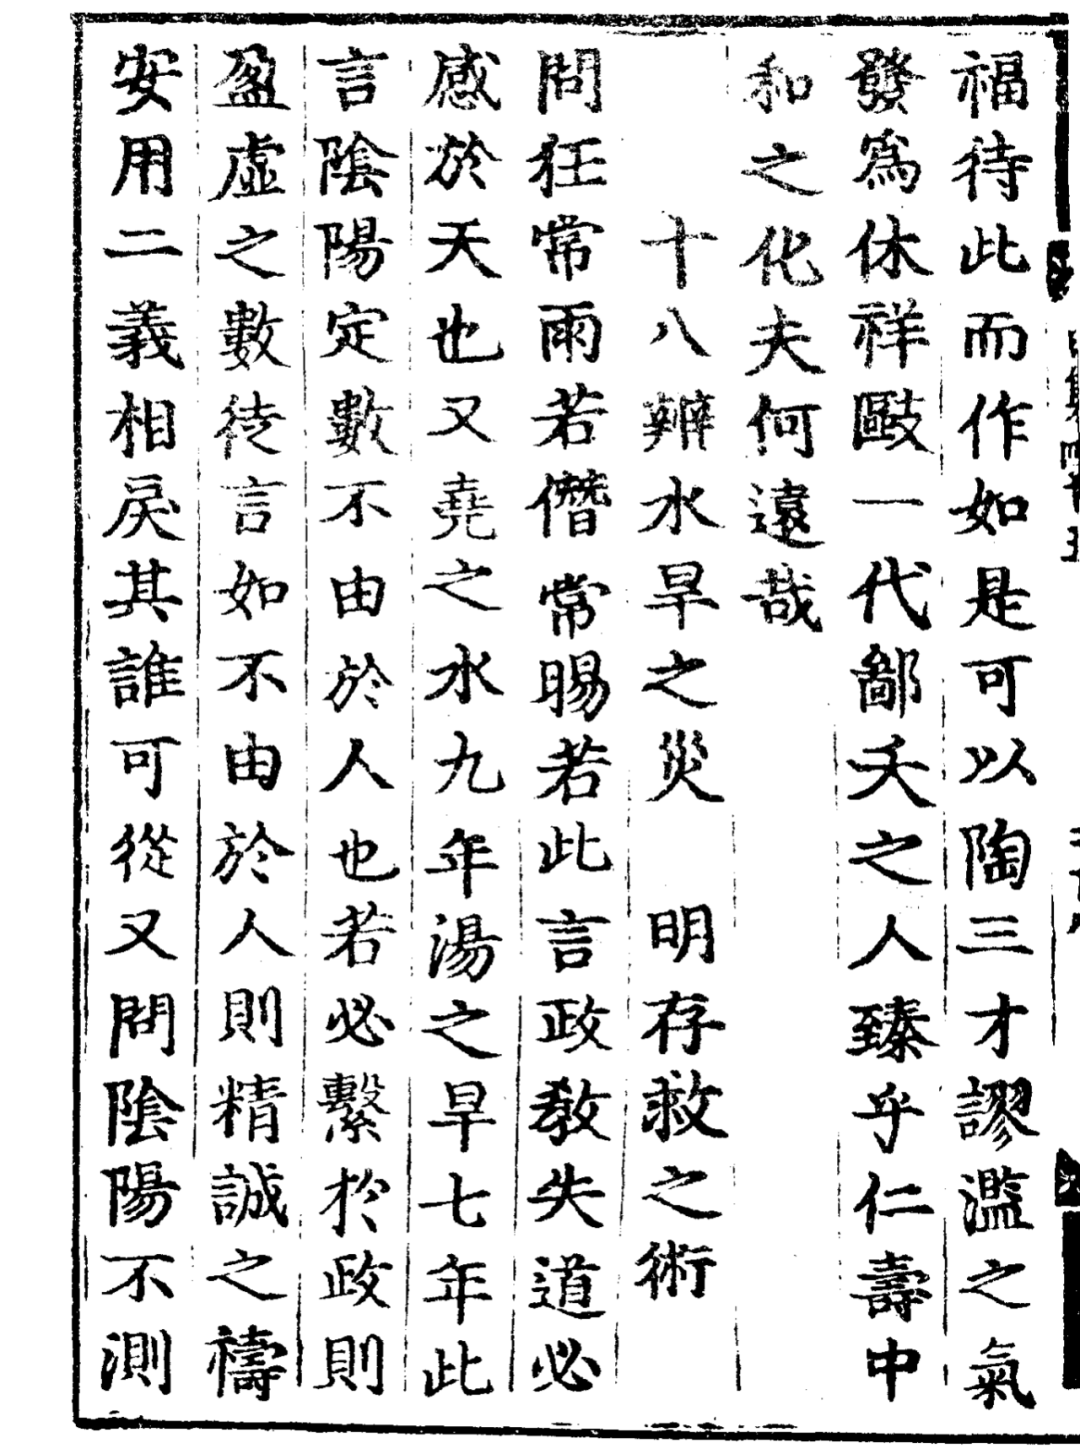 福待此而作如是可以陶三才謬濫之氣
發為休祥歐一代鄙夭之人臻乎仁壽中
和之化夫何遠哉
十八辨水旱之災　明存救之術
問狂常雨若僭常暘若此言政教失道必
感於天也又堯之水九年湯之旱七年此
言陰陽定數不由於人也若必繫於政則
盈虛之數徒言如不由於人則精誠之禱
安用二義相戾其誰可從又問陰陽不測